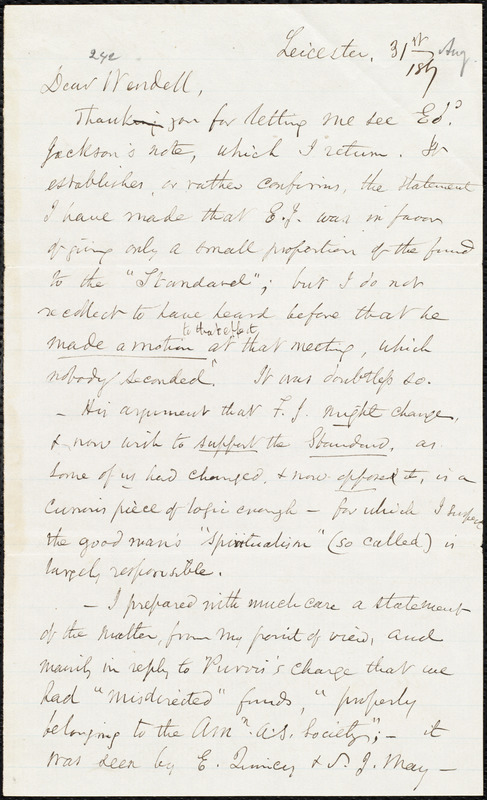 Leicester, 31st Aug.
186
242
Dear Wendell,
Thank you for letting me see Ed.
Jackson's note, which I return. It
establishes, or rather confirms, the statement
I have made that E.J. was in favor
of giving only a small proportion of the fund
to the "Standard"; but I do not
recollect to have heard before that he
to that effect,
made a motion at that meeting, which
nobody seconded". It was doubtless so.
- His argument that F. J. might change,
& now wish to support the Standard, as
some of us had changed, & now oppose it, is a
curious piece of logic enough - for which I suspect
the good man's "Spiritualism" (so called) is
largely responsible.
- I prepared with much care a statement
of the matter, from my point of view, and
mainly in reply to Purvis's charge that we
had "misdirected" funds, "properly
belonging to the Amn. A.S. Society"; - it
was seen by E. Quincy & S. J. May -